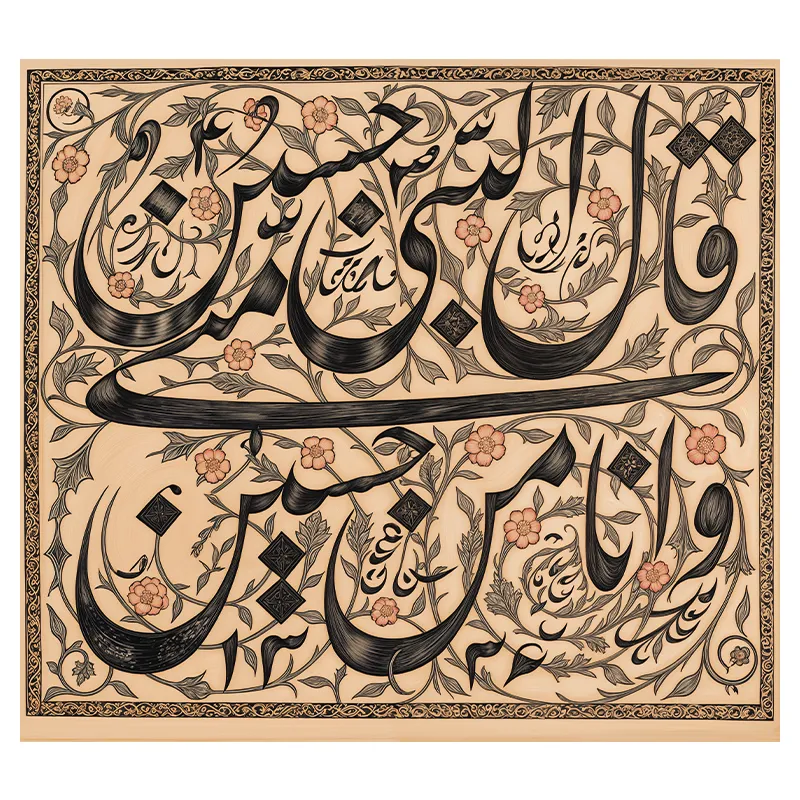 قال النبی حسین منی
وانا من حسین
۱۳۲۶